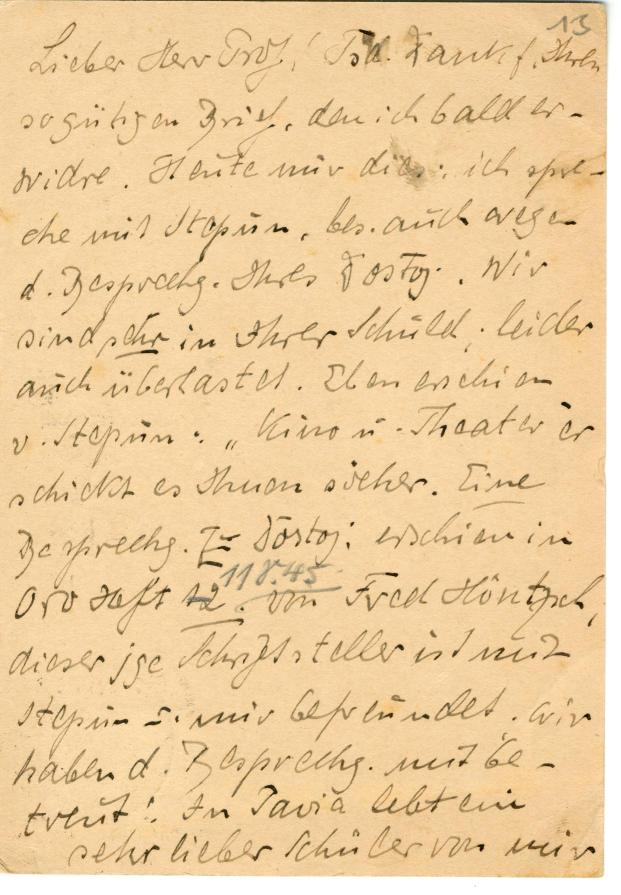 13
Lieber Herr Prof.! Tsd. Dank f. Ihren
so gütigen Brief, den ich bald er-
widre. Heute nur dies: ich spre-
che mit Stepun, bes. auch wegen
d. Besprechg. Ihres Dostoj. Wir
sind sehr in Ihrer Schuld, leider
auch überlastet. Eben erschien
v. Stepun: „Kino u. Theater er
schickt es Ihnen sicher. Eine
Besprechg. Dostoj. erschien in
Heft 12. von Fred Höntzsch,
118.45
dieser jge Schriftsteller ist mit
Stepun u. mir befreundet. Wir
haben d. Besprechg. mit be-
treut! In Pavia lebt ein
sehr lieber Schüler von mir